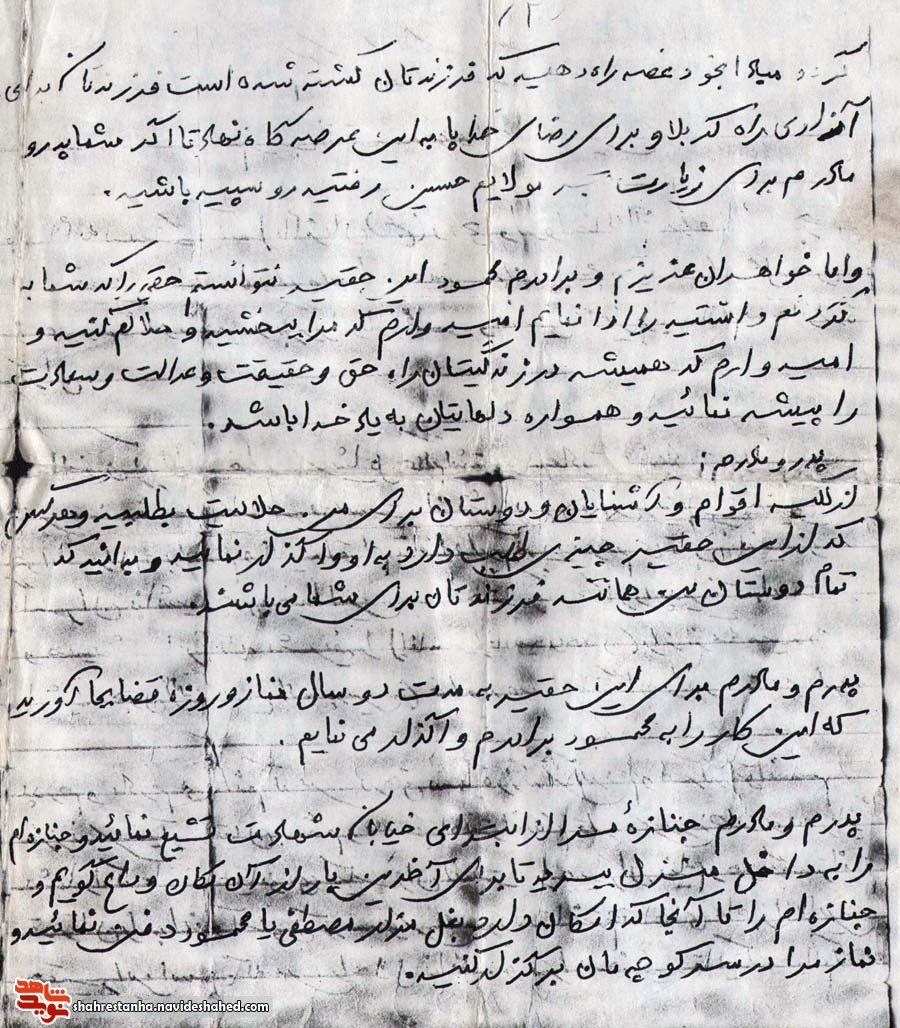 ۱۲
گردد مبادا بخود غصه راه دهید که فرزندتان کشته شده است فرزندتان برای
آزادی راه کربلا و برای رضای خدا پا به این عرصه گاه نهاد تا اگر شما پدر و
مادرم برای زیارت به مولایم حسین رفتید رو سپید باشید.
واما خواهران عزیزم و برادرم محمود این حقیر نتوانسته حقی را که شما به
گردنم داشتید را ادا نمایم امیدوارم که مرا ببخشید و حلالم کنید و
امیدوارم که همیشه در زندگیتان راه حق و حقیقت و عدالت و سعادت
را پیشه نمائید و همواره دلهایتان به یاد خدا باشد.
پدر و مادرم:
از کلیه اقوام و آشنایان و دوستان برای من حلالیت بطلبید و هر کس
که از این حقیر چیزی طلب دارد به او واگذار نمائید و بدانید که
تمام دوستان من همانند فرزندتان برای شما می باشند.
پدرم و مادرم برای این حقیر به مدت دو سال نماز و روزهٔ قضا بجا آورید
که این کار را به محمود برادرم واگذار می نمایم.
پدرم و مادرم جنازهٔ مرا از ابتدای خیابان شهادت تشیع نمائید و جنازه ام
را به داخل منزل ببرید تا برای آخرین بار از آن مکان وداع گویم و
جنازه ام را تا آنجا که امکان دارد بغل مزار مصطفی یا محمود دفن نمائید و
نماز مرا در سر کوچه مان برگزار کنید.
نوید شاهد
shahrestanha.navideshahed.com